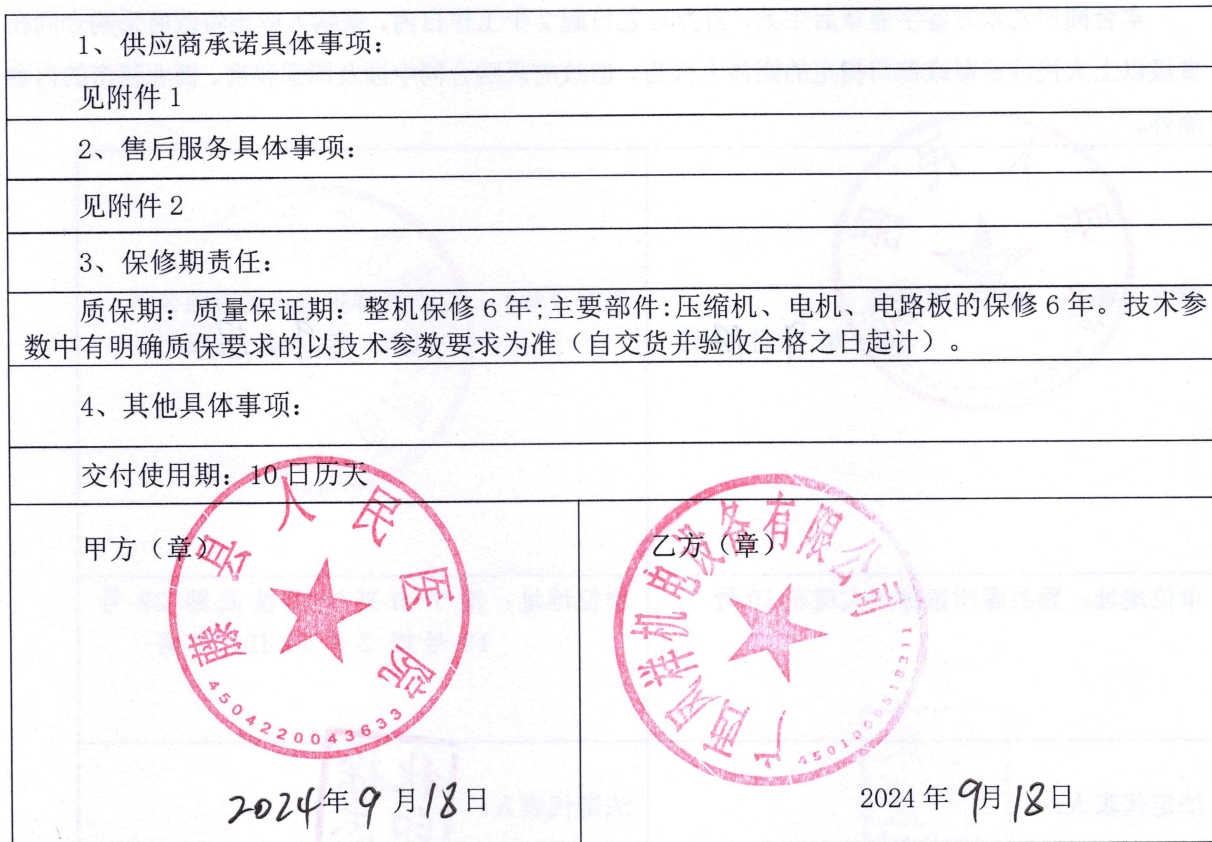 1、供应商承诺具体事项：
见附件 1
2、售后服务具体事项：
见附件 2
3、保修期责任：
质保期：质量保证期：整机保修 6 年;主要部件:压缩机、电机、电路板的保修 6 年。技术参
数中有明确质保要求的以技术参数要求为准（自交货并验收合格之日起计）。
4、其他具体事项：
交付使用期：10 日历天
甲方（章）
藤县人民医院
4504220043633
2024年 9 月 18 日
乙方（章）
广西风祥机电设备有限公司
2024 年 9月 18日